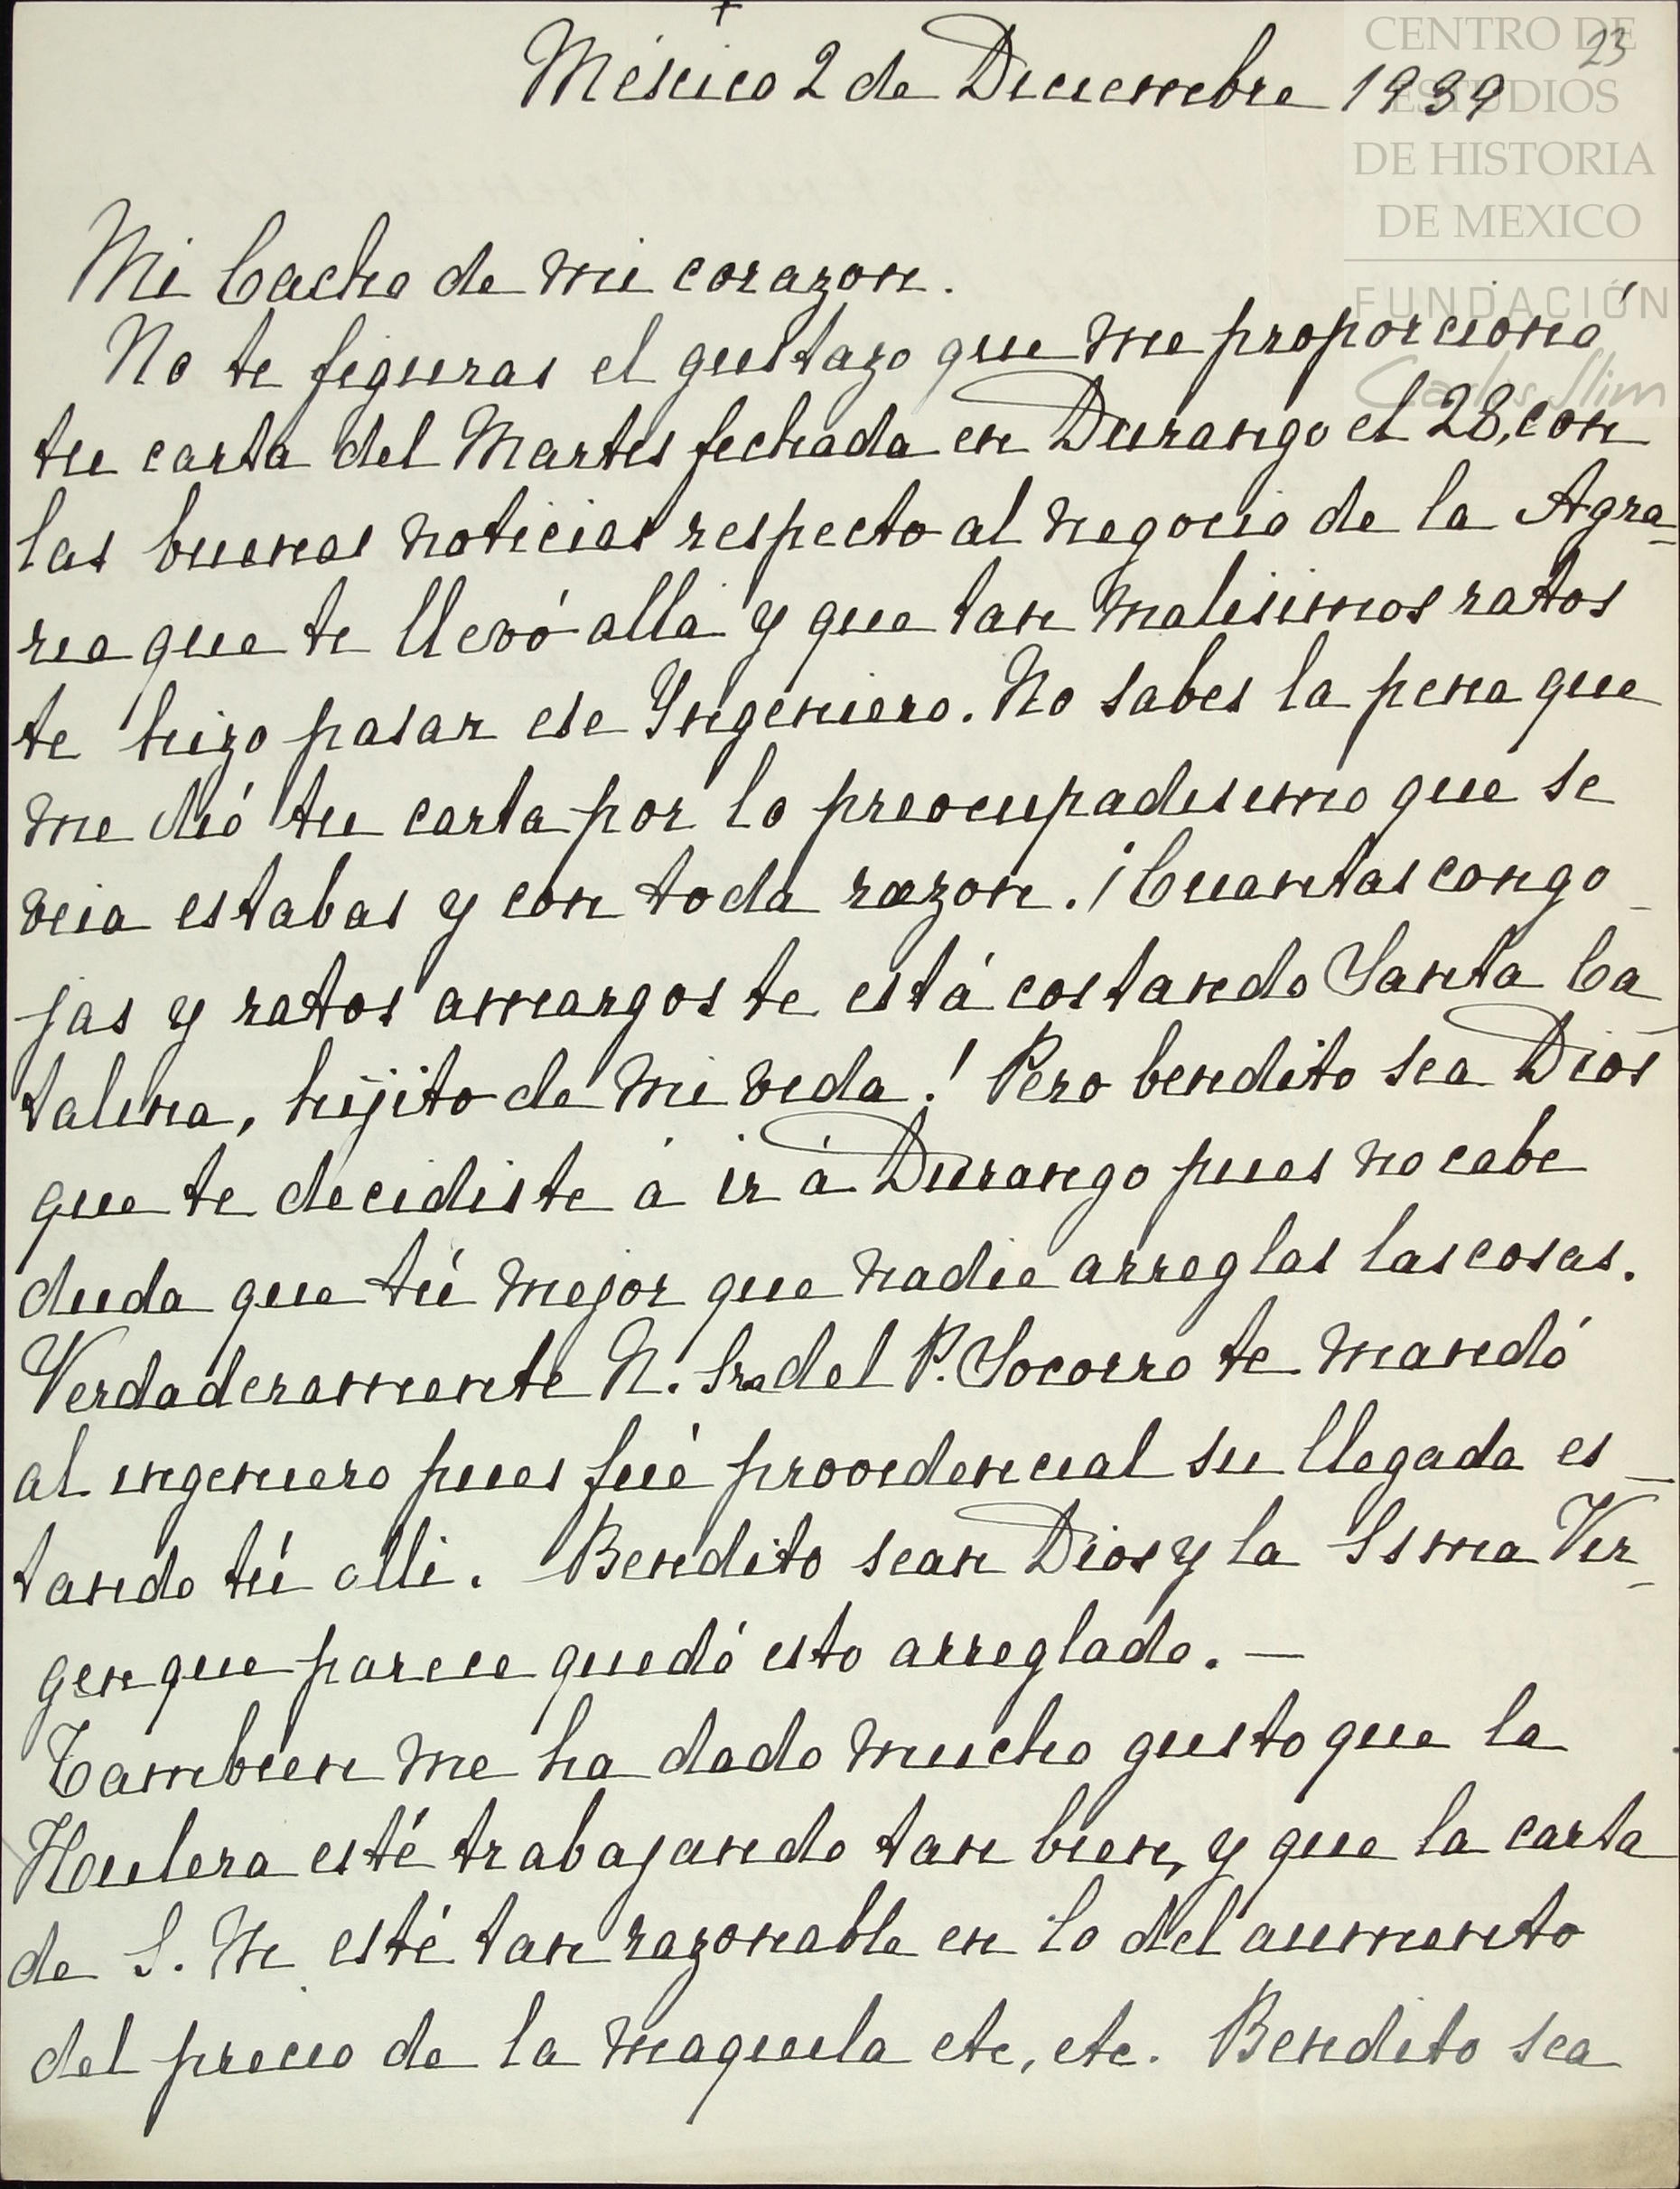 +
23
México 2 de Diciembre 1939
CENTRO DE
ESTUDIOS
DE HISTORIA
DE MEXICO
FUNDACIÓN
Carlos Slim
Mi Cacho de mi corazon.
No te figuras el gustazo que me proporcionó
tu carta del Martes fechada en Durango el 28, con
las buenas noticias respecto al negocio de la Agra-
ria que te llevó alla y que tan malisimos ratos
te hizo pasar ese Yngeniero. No sabes la pena que
me dió tu carta por lo preocupadisimo que se
veia estabas y con toda razon. ¡Cuantas congo-
jas y ratos amargos te está costando Santa Ca-
talina, hijito de mi vida! Pero bendito sea Dios
que te decidiste á ir á Durango pues no cabe
duda que tú mejor que nadie arreglas las cosas.
Verdaderamente N. Sra del P. Socorro te mandó
al ingeniero pues fué providencial su llegada es-
tando tú alli. Bendito sean Dios y la Ssma Vir-
gen que parece quedó esto arreglado. —
Tambien me ha dado mucho gusto que la
Houlera esté trabajando tan bien, y que la carta
de S. M esté tan razonable en lo del aumento
del precio de la maquila etc, etc. Bendito sea